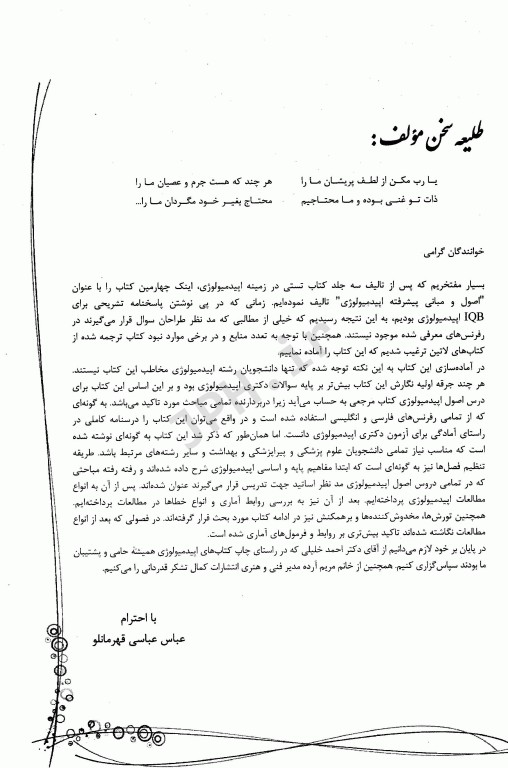 طلیعه سخن مؤلف:
یا رب مکن از لطف پریشان ما را هر چند که هست جرم و عصیان ما را
ذات تو غنی بوده و ما محتاجیم محتاج بغیر خود مگردان ما را...
خوانندگان گرامی
بسیار مفتخریم که پس از تالیف سه جلد کتاب تستی در زمینه اپیدمیولوژی، اینک چهارمین کتاب را با عنوان
"اصول و مبانی پیشرفته اپیدمیولوژی" تالیف نموده‌ایم. زمانی که در پی نوشتن پاسخنامه تشریحی برای
IQB اپیدمیولوژی بودیم، به این نتیجه رسیدیم که خیلی از مطالبی که مد نظر طراحان سوال قرار می‌گیرند در
رفرنس‌های معرفی شده موجود نیستند. همچنین با توجه به تعدد منابع و در برخی موارد نبود کتاب ترجمه شده از
کتاب‌های لاتین ترغیب شدیم که این کتاب را آماده نماییم.
در آماده‌سازی این کتاب به این نکته توجه شده که تنها دانشجویان رشته اپیدمیولوژی مخاطب این کتاب نیستند.
هر چند جرقه اولیه نگارش این کتاب بیش‌تر بر پایه سوالات دکتری اپیدمیولوژی بود و بر این اساس این کتاب برای
درس اصول اپیدمیولوژی کتاب مرجعی به حساب می‌آید زیرا دربردارنده تمامی مباحث مورد تاکید می‌باشد. به گونه‌ای
که از تمامی رفرنس‌های فارسی و انگلیسی استفاده شده است و در واقع می‌توان این کتاب را درسنامه کاملی در
راستای آمادگی برای آزمون دکتری اپیدمیولوژی دانست. اما همان‌طور که ذکر شد این کتاب به گونه‌ای نوشته شده
است که مناسب نیاز تمامی دانشجویان علوم پزشکی و پیراپزشکی و بهداشت و سایر رشته‌های مرتبط باشد. طریقه
تنظیم فصل‌ها نیز به گونه‌ای است که ابتدا مفاهیم پایه و اساسی اپیدمیولوژی شرح داده شده‌اند و رفته رفته مباحثی
که در تمامی دروس اصول اپیدمیولوژی مد نظر اساتید جهت تدریس قرار می‌گیرند عنوان شده‌اند. پس از آن به انواع
مطالعات اپیدمیولوژی پرداخته‌ایم. بعد از آن نیز به بررسی روابط آماری و انواع خطاها در مطالعات برداخته‌ایم.
همچنین تورش‌ها، مخدوش‌کننده‌ها و برهمکنش نیز در ادامه کتاب مورد بحث قرار گرفته‌اند. در فصولی که بعد از انواع
مطالعات نگاشته شده‌اند تاکید بیش‌تری بر روابط و فرمول‌های آماری شده است.
در پایان بر خود لازم می‌دانیم از آقای دکتر احمد خلیلی که در راستای چاپ کتاب‌های اپیدمیولوژی همیشه حامی و پشتیبان
ما بودند سپاس‌گزاری کنیم. همچنین از خانم مریم آرده مدیر فنی و هنری انتشارات کمال تشکر قدردانی را می‌کنیم.
با احترام
عباس عباسی قهرمانلو